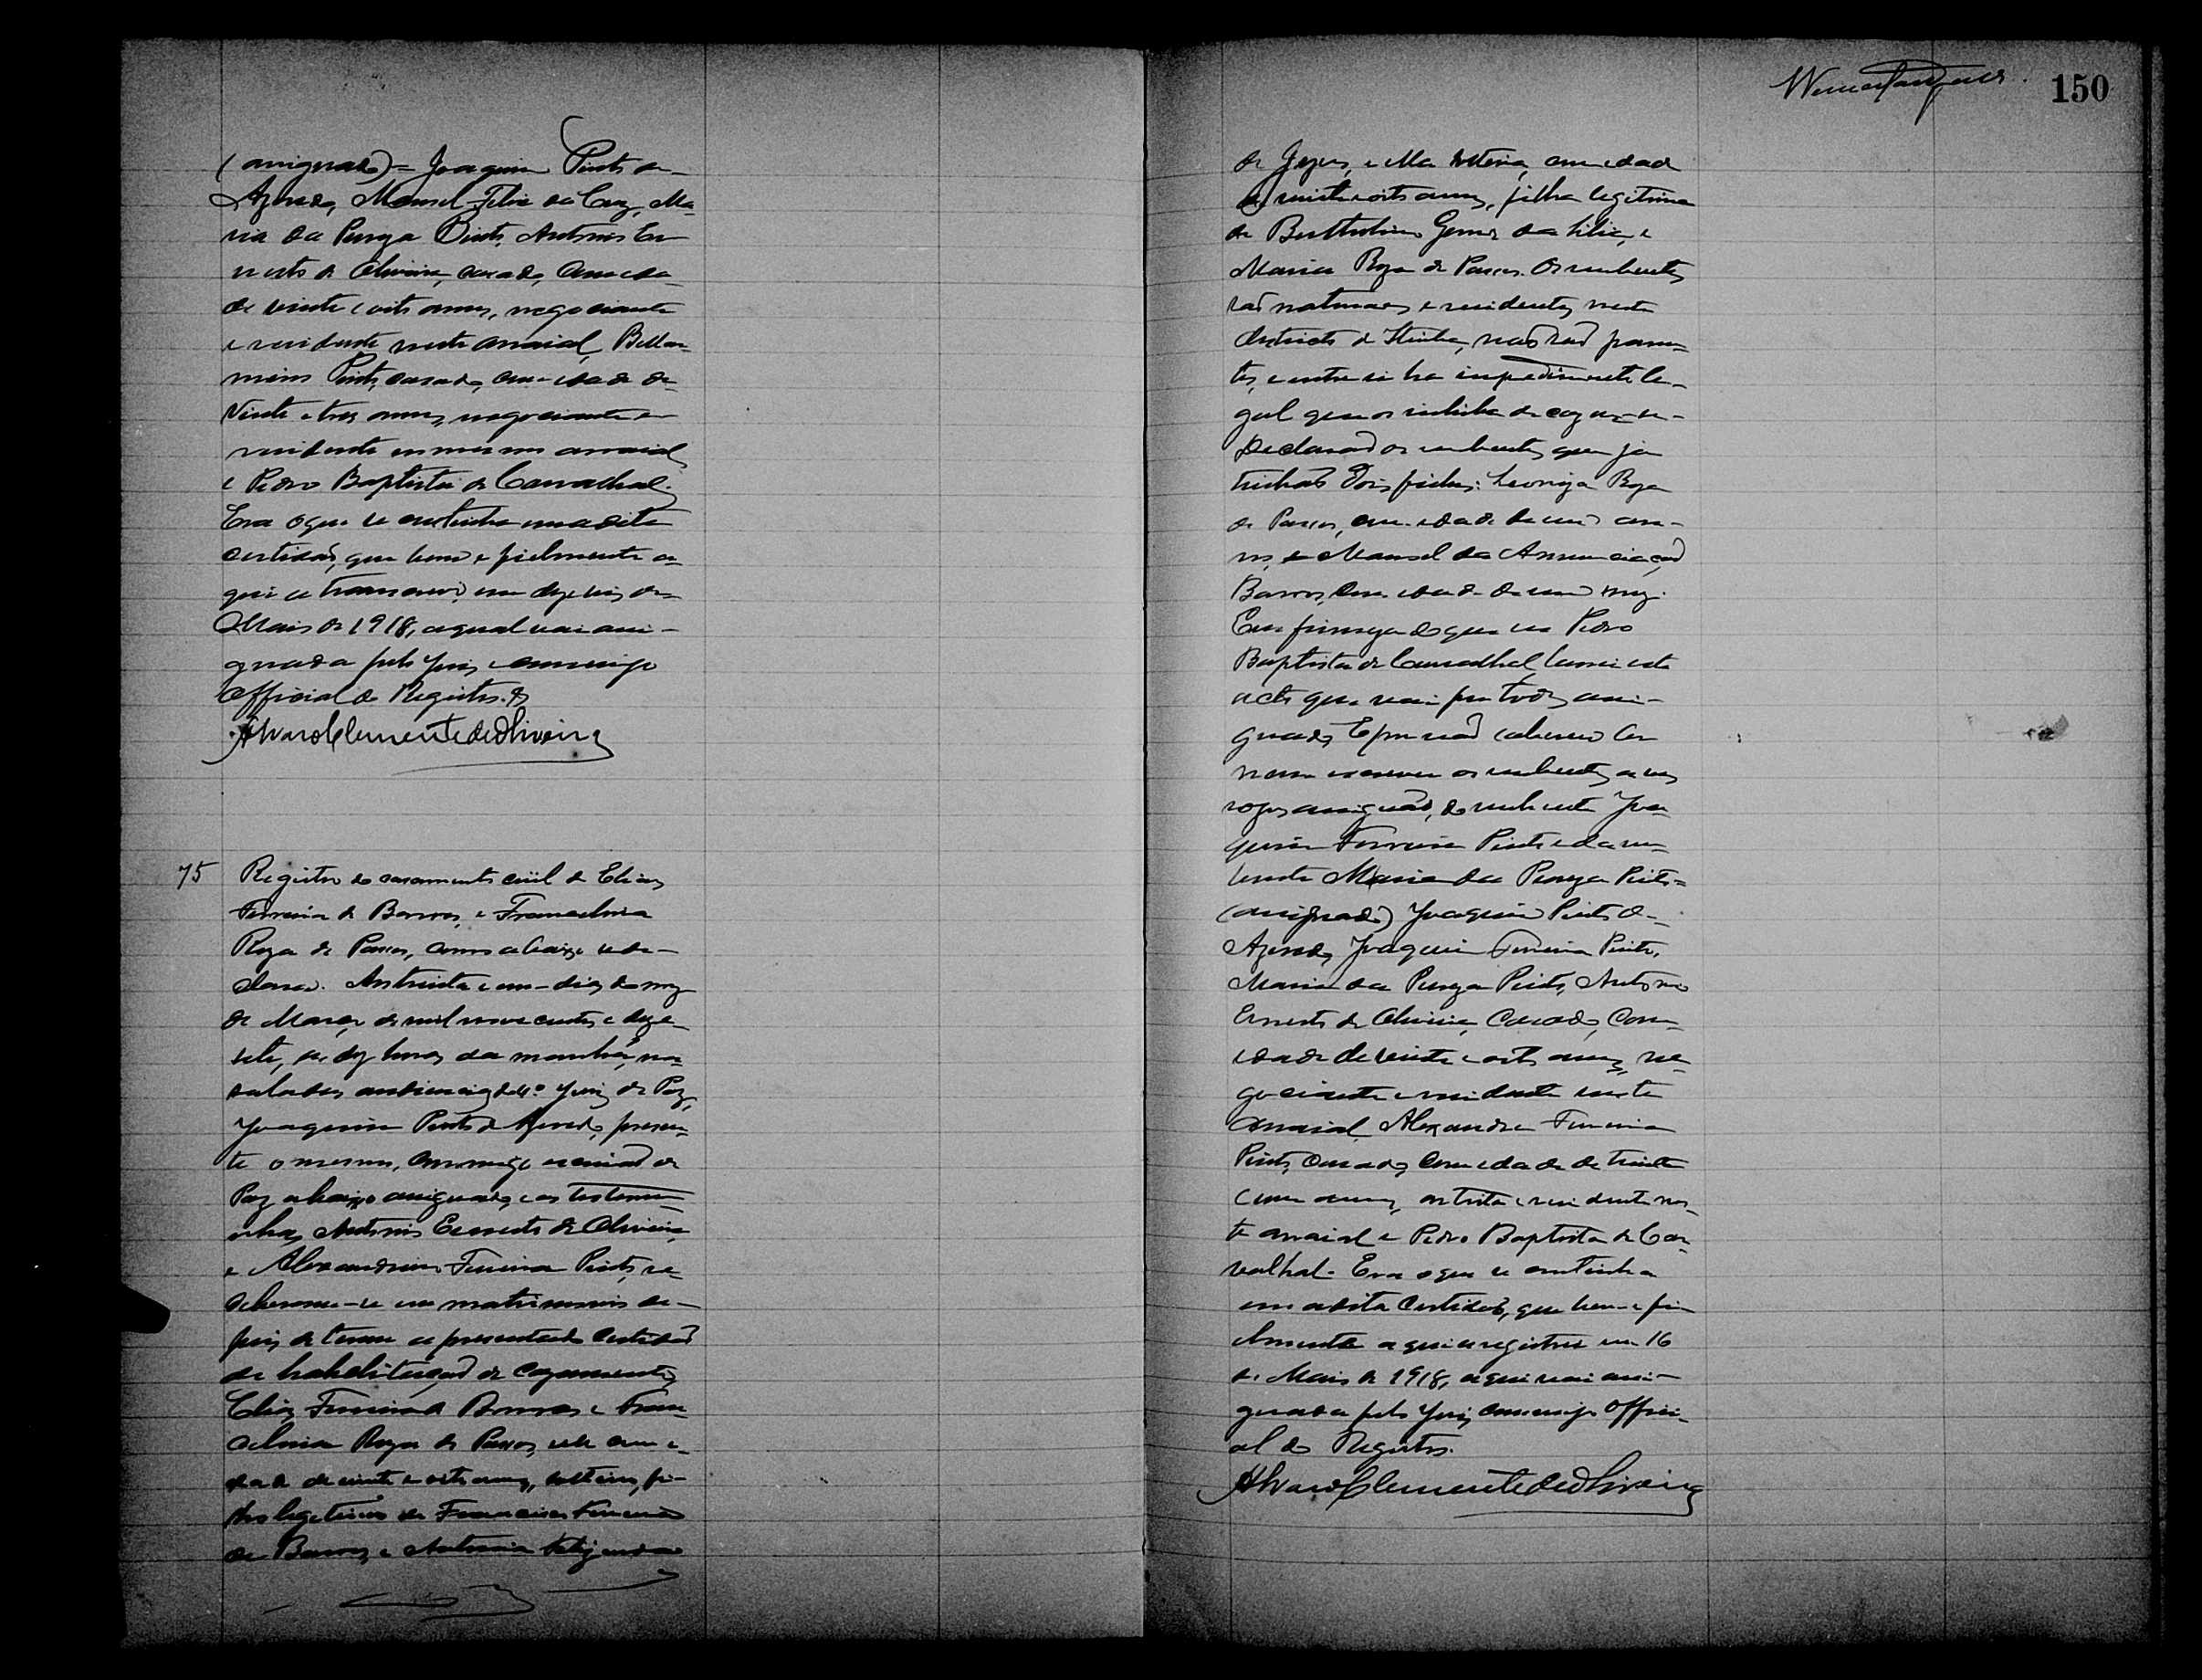 (assignado) = Joaquim Pinto de
Azevedo, Manoel Felix da Cruz, Ma-
ria da Pureza Pinto, Antonio Er-
nesto de Oliveira, casado, com ida-
de de vinte e oito annos, negociante
e residente neste arraial, Bellar-
mino Pinto, casado, com idade de
vinte e tres annos, negociante e
residente no mesmo arraial
e Pedro Baptista de Carvalhal.
Era o que se continha em a dita
certidão, que bem e fielmente a-
qui a transcrevi, em dezeseis de
Maio de 1918, a qual vai assi-
gnada pelo Juiz, e commigo
official do Registro.
Alvaro Clemente de Oliveira
75 Registro do casamento civil de Elias
Ferreira de Barros, e Francelina
Roza de Passos, como abaixo se de-
clara. Aos trinta e um dias do mez
de Março de mil novecentos e deze-
sete, as dez horas da manhã, na
sala das audiencias do Juiz de Paz,
Joaquim Pinto de Azevedo, presen-
te o mesmo, commigo escrivão de
Paz abaixo assignado, e as testemu-
nhas, Antonio Ernesto de Oliveira,
e Alexandrino Ferreira Pinto, re-
ceberam-se em matrimonio de-
pois de terem apresentado certidão
de habilitação de cazamento,
Elias Ferreira de Barros e Fran-
celina Roza de Passos, elle com i-
dade de vinte e oito annos, solteiro, fi-
lho legitimo de Francisco Ferreira
de Barros, e Antonia
150
de Jezus, e ella solteira, com idade
de vinte e oito annos, filha legitima
de Bertholino Gomes da Silva, e
Maria Roza de Passos. Os nubentes
são naturaes e residentes neste
districto de, não são paren-
tes, e entre si ha impedimento le-
gal que os inhiba de cazar-se.
Declararão os nubentes que já
tinhão dois filhos: Leoniza Roza
de Passos, com idade de um an-
no, e Manoel da Annunciação
Barros, com idade de um mez.
Em firmeza do que eu Pedro
Baptista de Carvalhal lavrei este
acto que vai por todos assi-
gnado, E por não saberem ler
nem escrever os nubentes a seus
rogos assignão, do nubente Joa-
quim Ferreira Pinto e da nu-
bente Maria da Pureza Pinto =
(assignado) Joaquim Pinto de
Azevedo, Joaquim Ferreira Pinto,
Maria da Pureza Pinto, Antonio
Ernesto de Oliveira, casado, com
idade de vinte e oito annos, ne-
gociante e residente neste
arraial, Alexandre Ferreira
Pinto, casado, com idade de trinta
e um annos, artista e residente nes-
te arraial e Pedro Baptista de Car-
valhal. Era o que se continha
em a dita certidão, que bem e fi-
elmente aqui a registrei em 16
de Maio de 1918, aqui vai assi-
gnada pelo Juiz, commigo offici-
al do Registro.
Alvaro Clemente de Oliveira